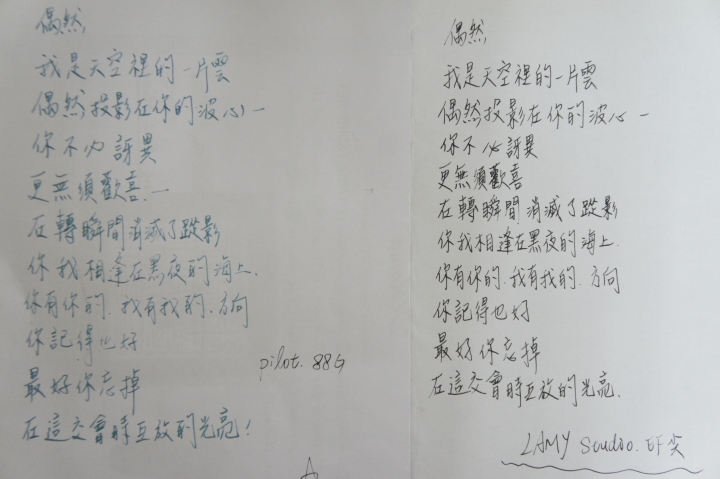 偶然,
我是天空裡的一片雲
偶然投影在你的波心一
你不必訝異
更無須歡喜.一
在轉瞬間消滅了蹤影
你我相逢在黑夜的海上.
你有你的.我有我的.方向
你記得也好
最好你忘掉
在這交會時互放的光亮!
pilot. 88G
A
偶然,
我是天空裡的一片雲
偶然投影在你的波心一
你不必訝異
更無須歡喜
在轉瞬間消滅了蹤影
你我相逢在黑夜的海上.
你有你的.我有我的.方向
你記得也好
最好你忘掉
在這交會時互放的光亮.
LAMY Studio. EF尖